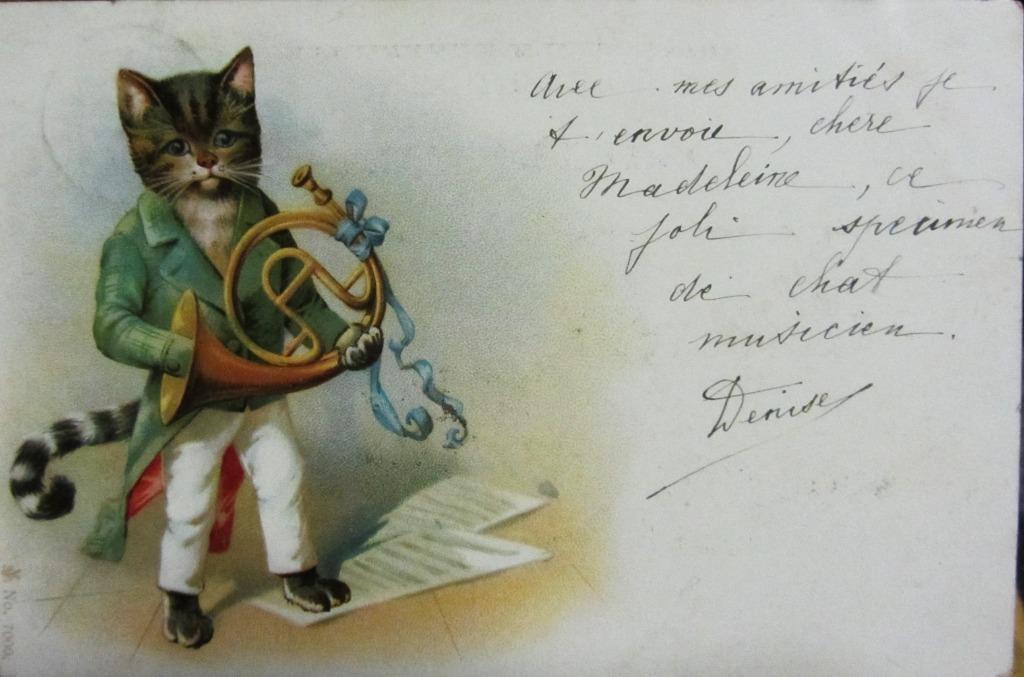 Avec mes amitiés je
t'envoie, chere
Madeleine, ce
joli specimen
de chat
musicien.
Denise
No. 7000.